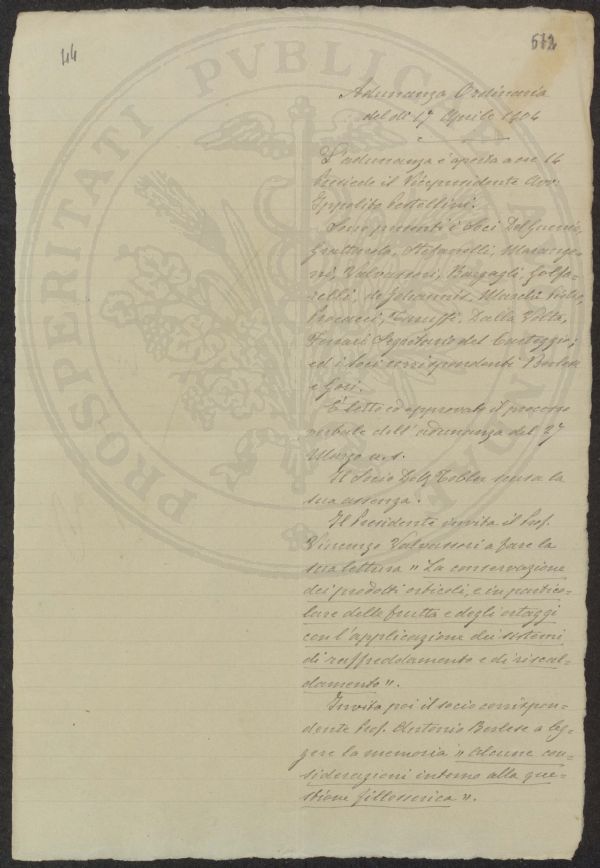 44
572
PROSPERITATI PVBLICAE
Adunanza Ordinaria
del dì 17 Aprile 1904
L'adunanza è aperta a ore 14
Presiede il Vicepresidente Avv.
Ippolito Pestellini.
Sono presenti i Soci Del Guercio,
Grattarola, Stefanelli, Marango-
ni, Valvassori, Bargagli, Golfa-
relli, de Johannis, Marchi
Passerini, Dalla Volta,
Ferrari Segretario del Carteggio;
ed i Soci corrispondenti Berlese
e Gori.
È letto ed approvato il processo
verbale dell'adunanza del 27
Marzo u.s.
Il Socio Tobler scusa la
sua assenza.
Il Presidente invita il Prof.
Vincenzo Valvassori a fare la
sua lettura "La conservazione
dei prodotti orticoli, e in partico=
lare della frutta e degli ortaggi
con l'applicazione dei sistemi
di raffreddamento e di riscal=
damento".
Invita poi il socio corrispon=
dente Prof. Antonio Berlese a leg=
gere la memoria "Alcune con=
siderazioni intorno alla que=
stione fillosserica".